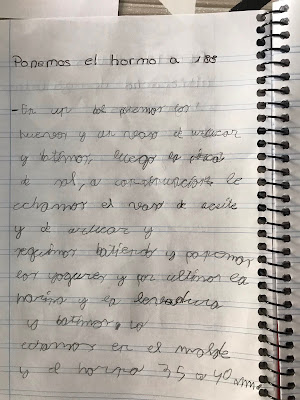 Ponemos el horno a 185
- En un bol ponemos los
huevos y un vaso de azucar
y batimos, luego la pizca
de sal, a continuación le
echamos el vaso de aceite
y de azucar y
seguimos batiendo y ponemos
los yogures y por ultimor la
harina y la levadura
y batimos, lo
echamos en el molde
y al horno 35 o 40 min